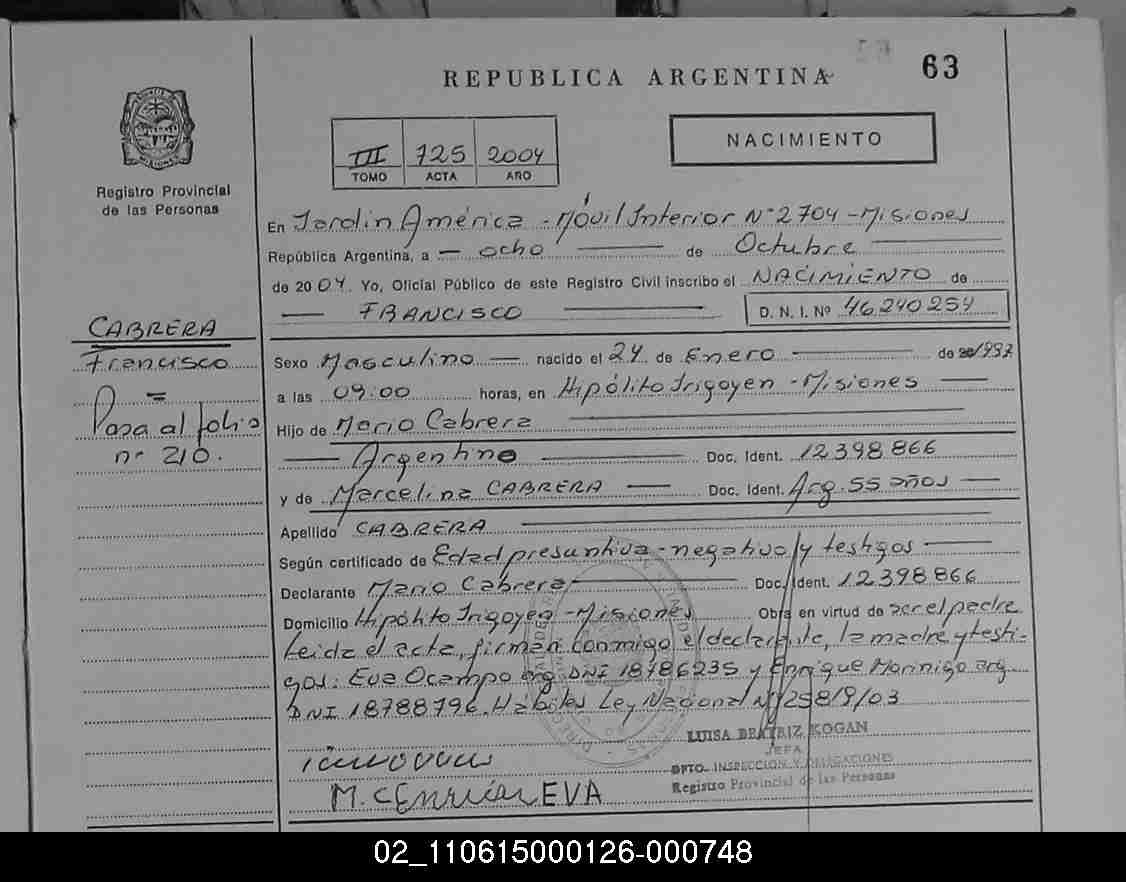 REPUBLICA ARGENTINA
63
III 725 2004
TOMO ACTA AÑO
NACIMIENTO
Registro Provincial
de las Personas
En Jardin América - Móvil Interior N° 2704 - Misiones
República Argentina, a — ocho — de Octubre —
de 2004. Yo, Oficial Público de este Registro Civil inscribo el NACIMIENTO de
— FRANCISCO — D. N. I. Nº 46.240.254
CABRERA
Francisco
=
Pasa al folio
n° 210.
Sexo Masculino — nacido el 24 de Enero — de 1997
a las 09:00 horas, en Hipólito Irigoyen - Misiones —
Hijo de Mario Cabrera —
— Argentino — Doc. Ident. 12398866
y de Marcelina CABRERA — Doc. Ident. Arg. 55 años —
Apellido CABRERA —
Según certificado de Edad presuntiva - negativo y testigos —
Declarante Mario Cabrera — Doc. Ident. 12398866
Domicilio Hipólito Irigoyen - Misiones Obra en virtud de ser el padre
Leida el acta, firman conmigo el declarante, la madre y testi-
gos: Eva Ocampo arg. DNI 18786235 y Enrique Marinigo arg.
DNI 18788796. Habiles Ley Nacional N° 25819/03
LUISA BEATRIZ KOGAN
JEFA
DPTO. INSPECCION Y DELEGACIONES
Registro Provincial de las Personas
M. C Enrique EVA
02_110615000126-000748